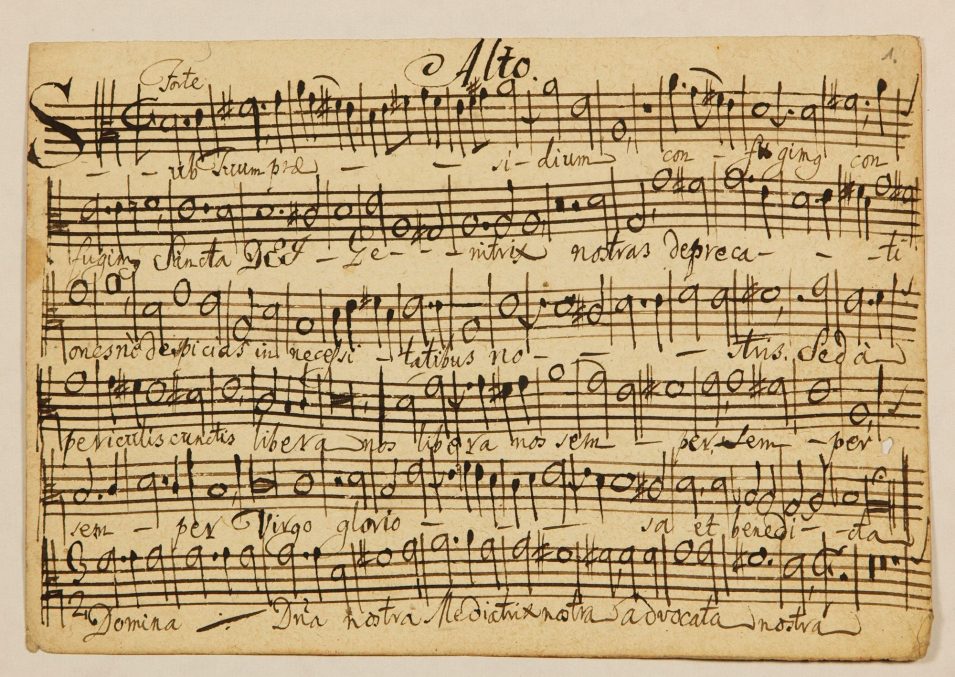 Alto.
1.
Forte
Sub tuum præ - - si - dium con - fugimg con
fugim, Sancta DEI - Ge - - nitrix nostras depreca - - ti
ones nò despicias in necessi - tatibus no - - - stris. Sed à
periculis cunctis libera nos libera nos sem - per, sem - per
sem - per Virgo glorio - - - sa et benedi - cta
3
2
Domina ./. Dña nostra Mediatrix nostra advocata nostra